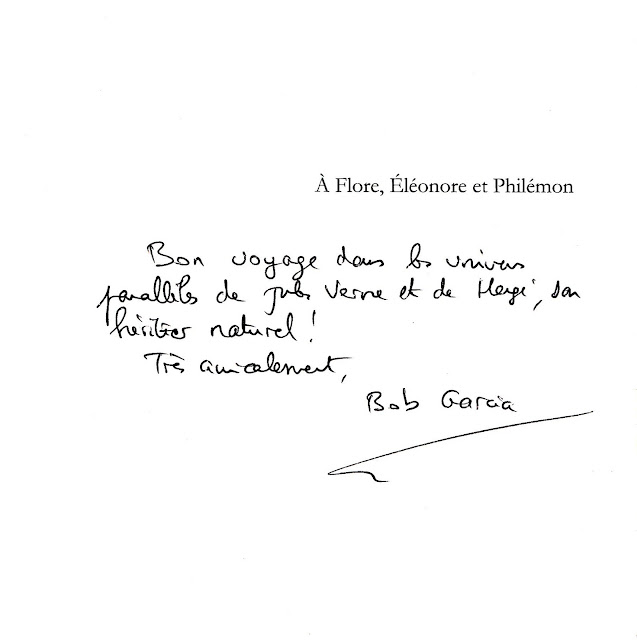 À Flore, Éléonore et Philémon
Bon voyage dans les univers
parallèles de Jules Verne et de Hergé, son
héritier naturel !
Très amicalement,
Bob Garcia